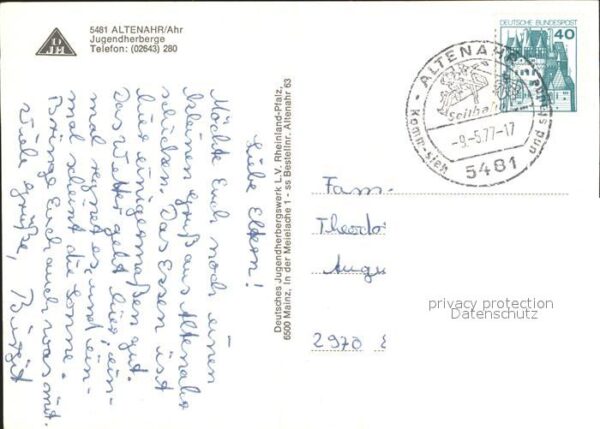 5481 ALTENAHR/Ahr
Jugendherberge
Telefon: (02643) 280
DJH
Liebe Eltern!
Möchte Euch noch einen
kleinen Gruß aus Altenahr
schicken. Das Essen ist
hier einigermaßen gut.
Das Wetter geht hier; ein-
mal regnet es und ein-
mal scheint die Sonne.
Bringe Euch auch was mit.
Viele Grüße, Birgit
Deutsches Jugendherbergswerk L.V. Rheinland-Pfalz,
6500 Mainz, In der Meielache 1 - ss Bestellnr. Altenahr 63
DEUTSCHE BUNDESPOST
40
ALTENAHR
Seilbahn
-9.-5.77-17
5481
komm-sieh und
Fam.
Theodo
Augu
2970
privacy protection
Datenschutz